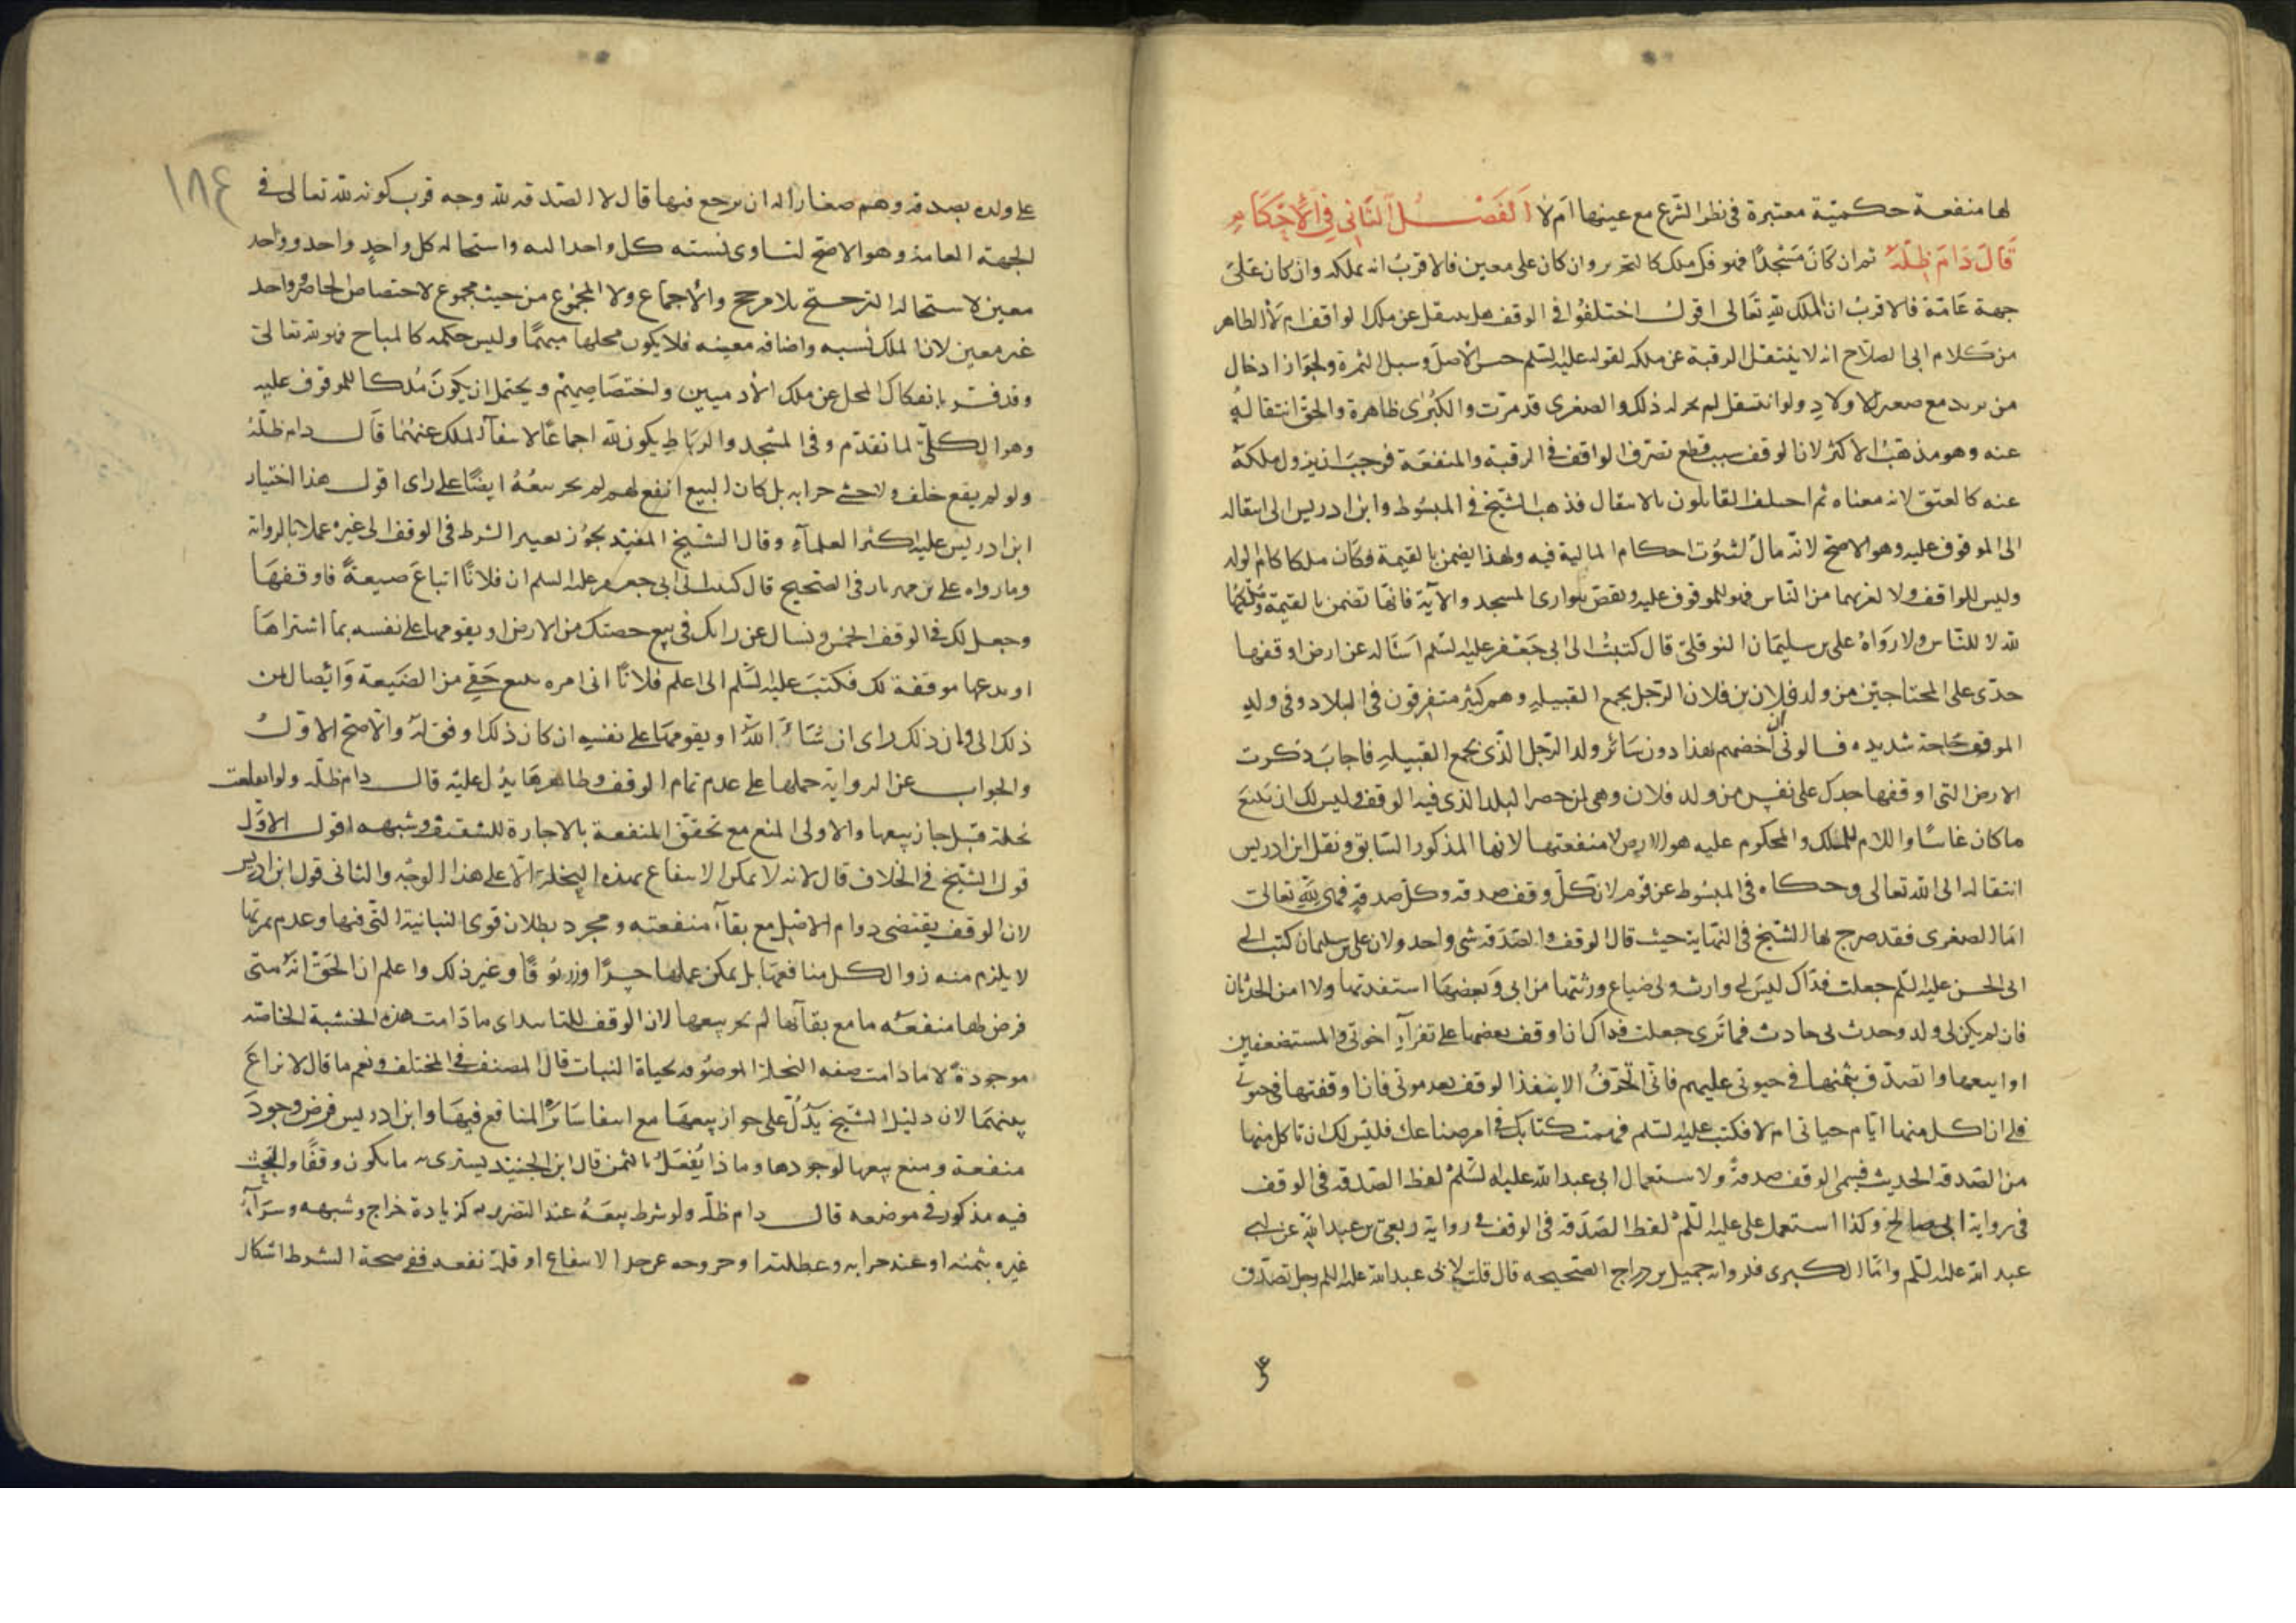 لها منفعة حكمية معتبرة فى نظر الشرع مع عينها ام لا الفصل الثانى فى الاحكام
قال دام ظله ثم ان كان مسجدا فهو فك ملك كالتحرير وان كان على معين فالاقرب انه يملكه وان كان على
جهة عامة فالاقرب ان الملك لله تعالى اقول اختلفوا فى الوقف هل ينتقل عن ملك الواقف ام لا الظاهر
من كلام ابى الصلاح انه لا ينتقل الرقبة عن ملكه لقوله عليه السلم حبس الاصل وسبل الثمرة ولجواز ادخال
من يريد مع صغير الاولاد ولو انتقل لم يجز له ذلك والصغرى قد مرت والكبرى ظاهرة والحق انتقاله
عنه وهو مذهب الاكثر لان الوقف سبب قطع تصرف الواقف فى الرقبة والمنفعة فوجب ان يزول ملكه
عنه كالعتق لانه معناه ثم اختلف القايلون بالانتقال فذهب الشيخ فى المبسوط وابن ادريس الى انتقاله
الى الموقوف عليه وهو الاصح لانه مال لثبوت احكام المالية فيه ولهذا يضمن بالقيمة فكان ملكا كام الولد
وليس للواقف ولا لغيرهما من الناس فهو للموقوف عليه ونقض ببوارى المسجد والآية فانها تضمن بالقيمة وملكها
لله لا للناس ولا رواه على بن سليمان النوفلى قال كتبت الى ابى جعفر عليه السلم اسئاله عن ارض اوقفها
جدى على المحتاجين من ولد فلان بن فلان الرجل يجمع القبيلة وهم كثير متفرقون فى البلاد وفى ولد
الموقف حاجة شديدة فسالونى ان اخصهم بهذا دون سائر ولد الرجل الذى يجمع القبيلة فاجاب ذكرت
الارض التى اوقفها جدك على نفس من ولد فلان وهى لمن حضر البلد الذى فيه الوقف وليس لك ان تتبع
ما كان غائبا واللام للملك والمحكوم عليه هو الارض لا منفعتها لانها المذكور السابق ونقل ابن ادريس
انتقاله الى الله تعالى وحكاه فى المبسوط عن قوم لان كل وقف صدقة وكل صدقة فهى لله تعالى
اما الصغرى فقد صرح بها الشيخ فى النهاية حيث قال الوقف والصدقة شى واحد ولان على بن سليمان كتب الى
ابى الحسن عليه السلم جعلت فداك ليس لى وارث ولى ضياع ورثتها من ابى وبعضها استفدتها ولا امن الحدثان
فان لم يكن لى ولد وحدث لى حادث فما ترى جعلت فداك ان اوقف بعضها على فقراء اخوتى والمستضعفين
او ابيعها واتصدق بثمنها فى حيوتى عليهم فانى اتخوف الا ينفذ الوقف بعد موتى فان اوقفتها فى حيوتى
فلى ان اكل منها ايام حياتى ام لا فكتب عليه السلم فهمت كتابك فى امر ضياعك فليس لك ان تاكل منها
من الصدقة الحديث فسمى الوقف صدقة ولا ستعمال ابى عبدالله عليه السلم لفظ الصدقة فى الوقف
فى رواية ابى صالح وكذا استعمل على عليه السلم لفظ الصدقة فى الوقف فى رواية ربعى بن عبد الله عن ابى
عبد الله عليه السلم واما الكبرى فلرواية جميل بن دراج الصحيحه قال قلت لابى عبد الله عليه السلم رجل تصدق
١٨٤
على ولده بصدقة وهم صغار اله ان يرجع فيها قال لا الصدقه لله وجه قرب كونه لله تعالى فى
الجهة العامة وهو الاصح لتساوى نسبته كل واحد اليه واستحالة كل واحد واحد وواحد
معين لاستحالة الترجيح بلا مرجح والاجماع ولا المجموع من حيث مجموع لاختصاص الحاضر وواحد
غير معين لان الملك نسبه واضافه معينه فلا يكون محلها مبهما وليس حكمه كالمباح فهو لله تعالى
وقد فسر بانفكاك المحل عن ملك الادميين واختصاصهم ويحتمل ان يكون ملكا للموقوف عليه
وهو الكلى لما تقدم وفى المسجد والرباط يكون لله اجماعا لانتفآء الملك عنهما قال دام ظله
ولو لم يقع خلف ولا خشى خرابه بل كان البيع انفع لهم لم يجز بيعه ايضا على راى اقول هذا اختيار
ابن ادريس عليه اكثر العلمآء وقال الشيخ المفيد يجوز تغيير الشرط فى الوقف الى غيره عملا بالرواية
وما رواه على بن مهزيار فى الصحيح قال كتبت الى ابى جعفر عليه السلم ان فلانا ابتاع ضيعة فاوقفها
وجعل لك فى الوقف الخمس ونسال عن رايك فى بيع حصتك من الارض او يقومها على نفسه بما اشتراها
او يدعها موقفة لك فكتب عليه السلم الى اعلم فلانا انى امره ببيع حقى من الضيعة وايصال ثمن
ذلك الى وان ذلك راى ان شاء الله او يقومها على نفسه ان كان ذلك اوفق له والاصح الاول
والجواب عن الرواية حملها على عدم تمام الوقف وظاهرها يدل عليه قال دام ظله ولو انقلعت
نخلة قيل جاز بيعها والاولى المنع مع تحقق المنفعة بالاجارة للتسقيف وشبهه اقول الاول
قول الشيخ فى الخلاف قال لانه لا يمكن الانتفاع بهذه النخلة الا على هذا الوجه والثانى قول ابن ادريس
لان الوقف يقتضى دوام الاصل مع بقآء منفعته ومجرد بطلان قوى النباتية التى فيها وعدم ثمرتها
لا يلزم منه زوال كل منافعها بل يمكن عملها جسرا وزرنوقا وغير ذلك واعلم ان الحق انه متى
فرض لها منفعه ما مع بقآئها لم يجز بيعها لان الوقف للتابيد اى ما دامت هذه الخشبة الخاصة
موجودة لا ما دامت صفه النخلة الموصوفه بحياة النبات قال المصنف فى المختلف ونعم ما قال لا نزاع
بينهما لان دليل الشيخ يدل على جواز بيعها مع انتفا سائر المنافع فيها وابن ادريس فرض وجود
منفعة ومنع بيعها لوجودها وماذا يفعل بالثمن قال ابن الجنيد يشترى به ما يكون وقفا والبحث
فيه مذكور فى موضعه قال دام ظله ولو شرط بيعه عند التضرر به كزيادة خراج وشبهه وشرآء
غيره بثمنه او عند خرابه وعطلته او خروجه عن حد الانتفاع او قلة نفعه ففى صحة الشرط اشكال